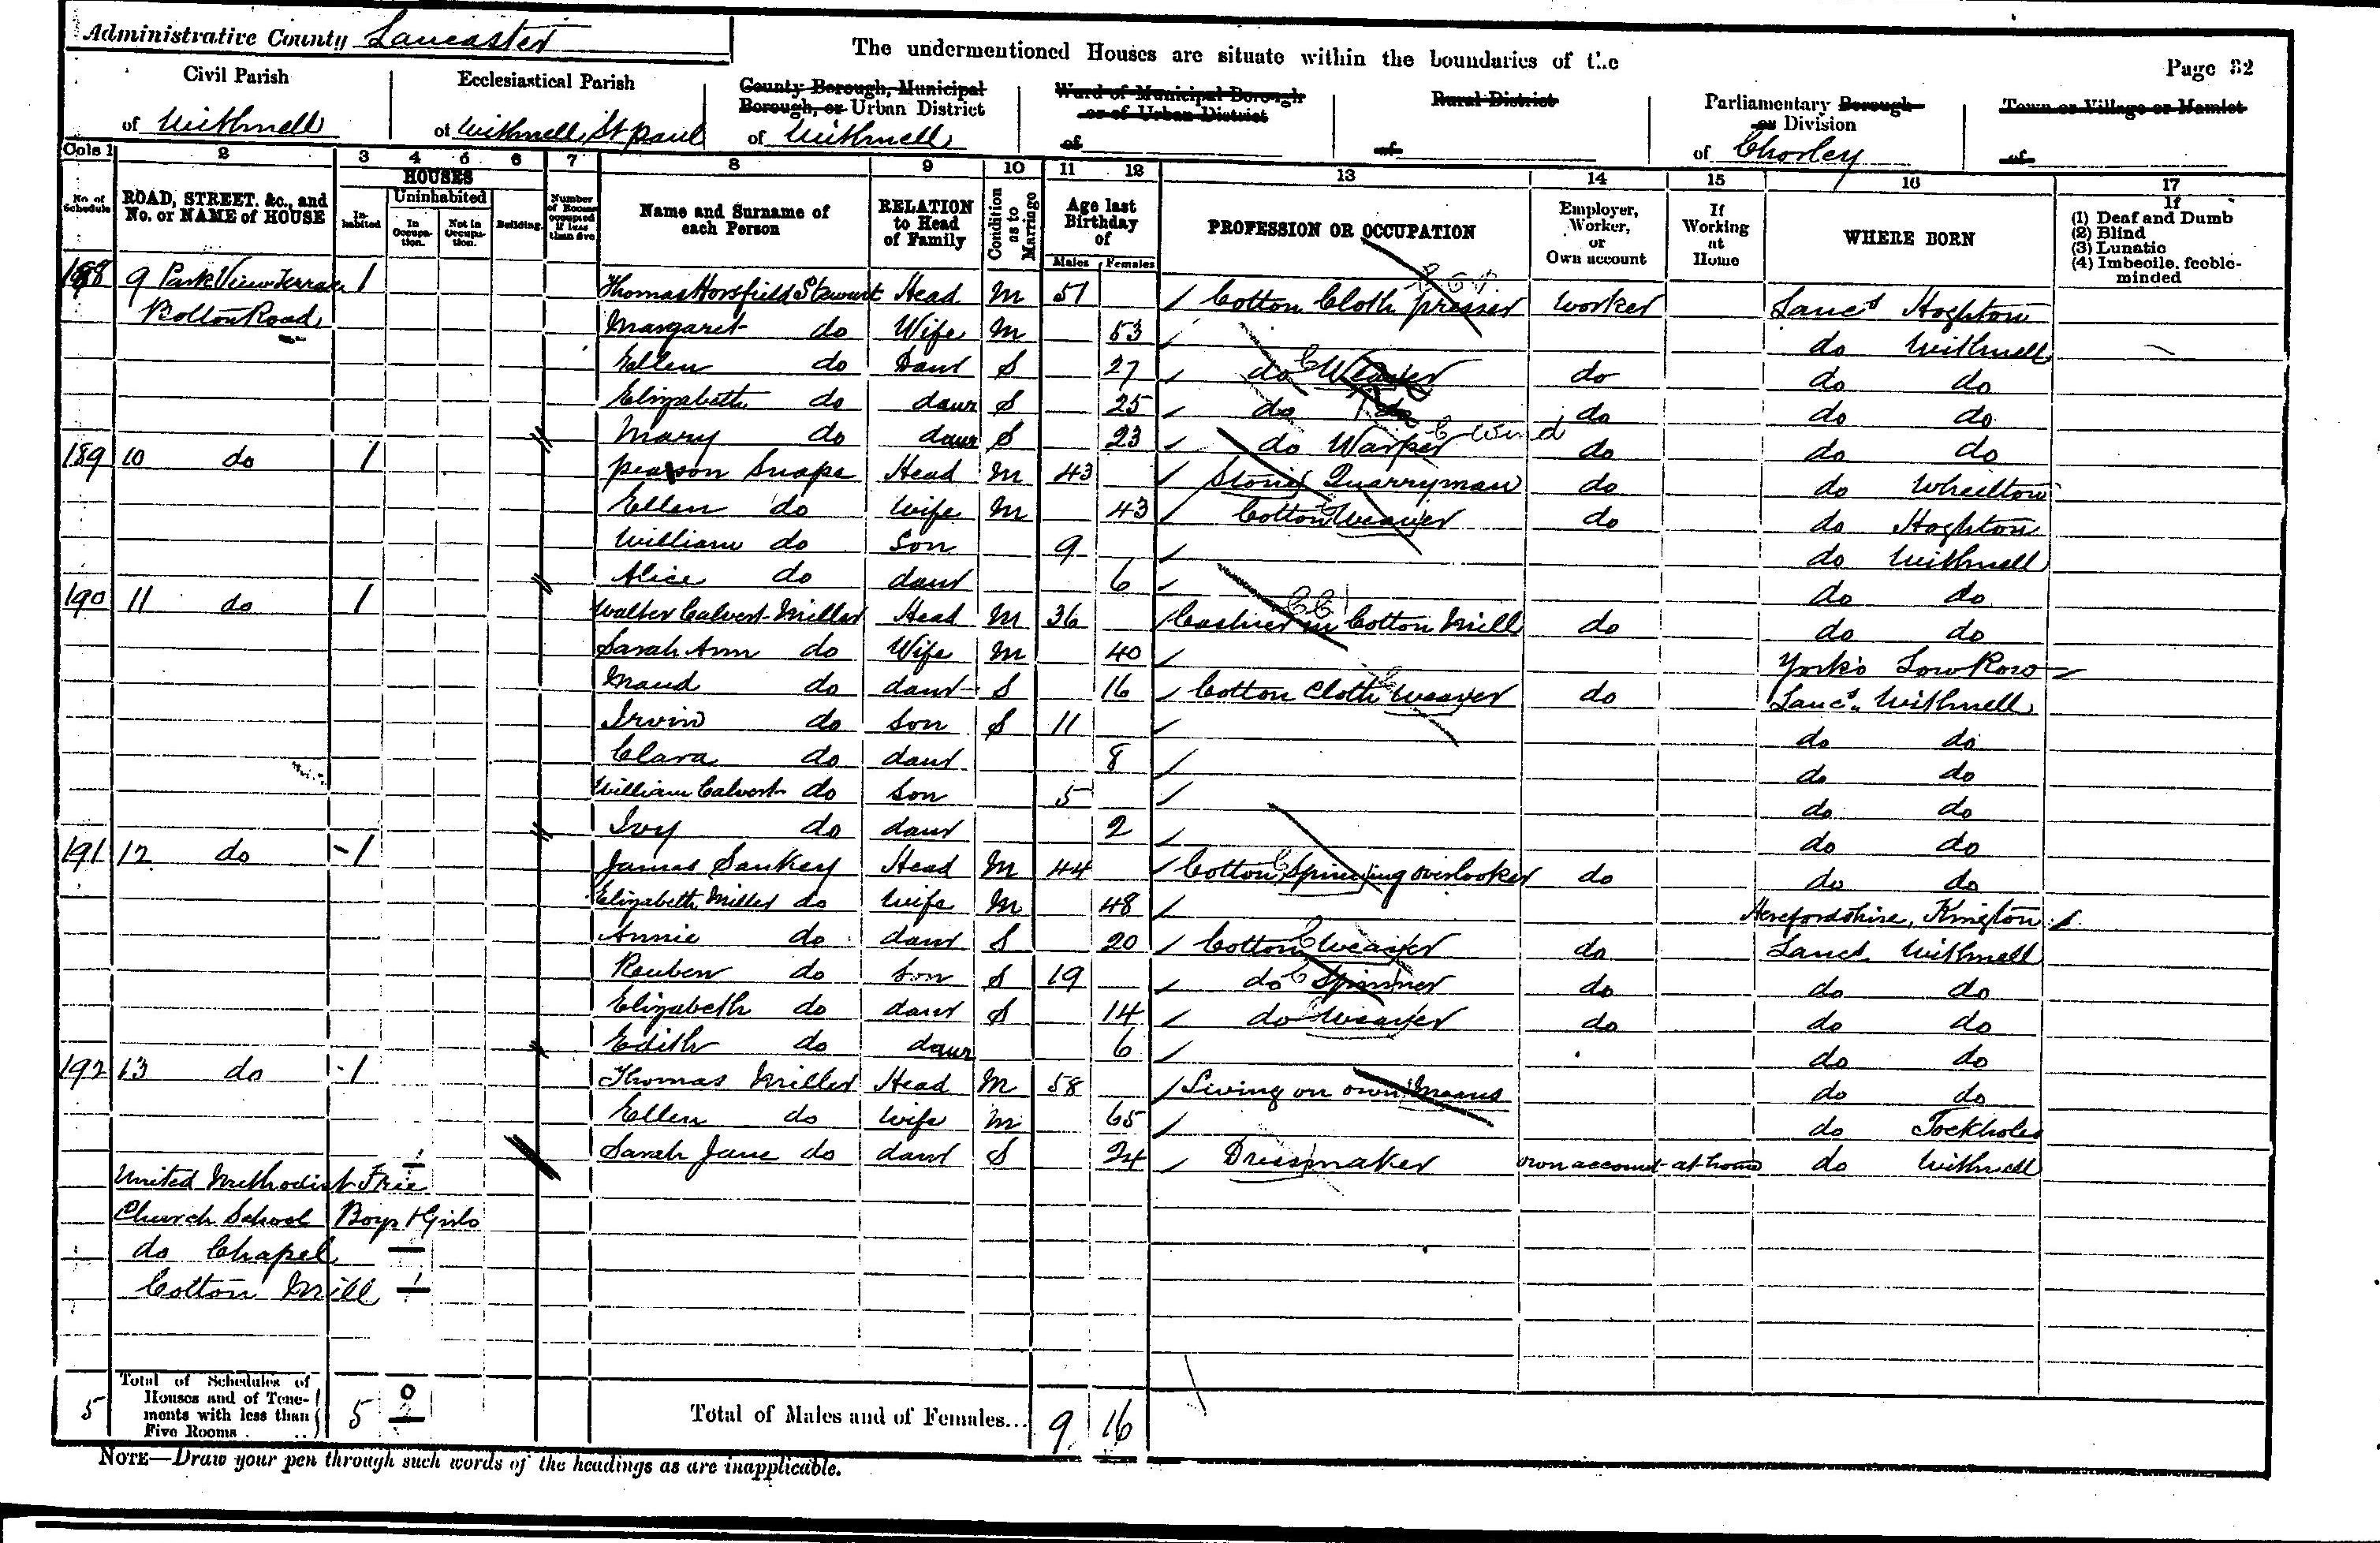 Administrative County Lancaster
The undermentioned Houses are situate within the boundaries of the
Page 32
Civil Parish of Withnell
Ecclesiastical Parish of Withnell St Paul
County Borough, Municipal Borough, or Urban District of Withnell
Ward of Municipal Borough or of Urban District of
Rural District of
Parliamentary Borough or Division of Chorley
Town or Village or Hamlet of
Cols 1 2 3 4 5 6 7 8 9 10 11 12 13 14 15 16 17
No. of Schedule
ROAD, STREET, &c., and No. or NAME of HOUSE
HOUSES
Inhabited
Uninhabited
In Occupation.
Not in Occupation.
Building.
Number of Rooms occupied if less than five
Name and Surname of each Person
RELATION to Head of Family
Condition as to Marriage
Age last Birthday of
Males Females
PROFESSION OR OCCUPATION
Employer, Worker, or Own account
If Working at Home
WHERE BORN
If
(1) Deaf and Dumb
(2) Blind
(3) Lunatic
(4) Imbecile, feeble-minded
188 9 Park View Terrace 1 Thomas Horsfield Stewart Head M 51 Cotton Cloth presser worker Lancs Hoghton
Bolton Road Margaret do Wife M 53 do Withnell
Ellen do Daur S 27 do Weaver do do do
Elizabeth do daur S 25 do do do do do
Mary do daur S 23 do Warper C Wind do do do
189 10 do 1 pearson Snape Head M 43 Stone Quarryman do do Wheelton
Ellen do wife M 43 Cotton Weaver do do Hoghton
William do Son 9 do Withnell
Alice do daur 6 do do
190 11 do 1 Walter Calvert Miller Head M 36 Cashier in Cotton Mill do do do
Sarah Ann do Wife M 40 York's Low Row
Maud do daur S 16 Cotton Cloth weaver do Lancs. Withnell
Irvin do Son S 11 do do
Clara do daur 8 do do
William Calvert do Son 5 do do
Ivy do daur 2 do do
191 12 do 1 James Sankey Head M 44 Cotton Spinning overlooker do do do
Elizabeth Miller do wife M 48 Herefordshire, Kington
Annie do daur S 20 Cotton Weaver do Lancs Withnell
Reuben do Son S 19 do Spinner do do do
Elizabeth do daur S 14 do Weaver do do do
Edith do daur 6 do do
192 13 do 1 Thomas Miller Head M 58 Living on own means do do
Ellen do wife M 65 do Tockholes
Sarah Jane do daur S 24 Dressmaker own account at home do Withnell
United Methodist Free 1
Church School Boys & Girls
do Chapel
Cotton Mill 1
5 Total of Schedules of Houses and of Tenements with less than Five Rooms 5
Total of Males and of Females... 9 16
NOTE—Draw your pen through such words of the headings as are inapplicable.